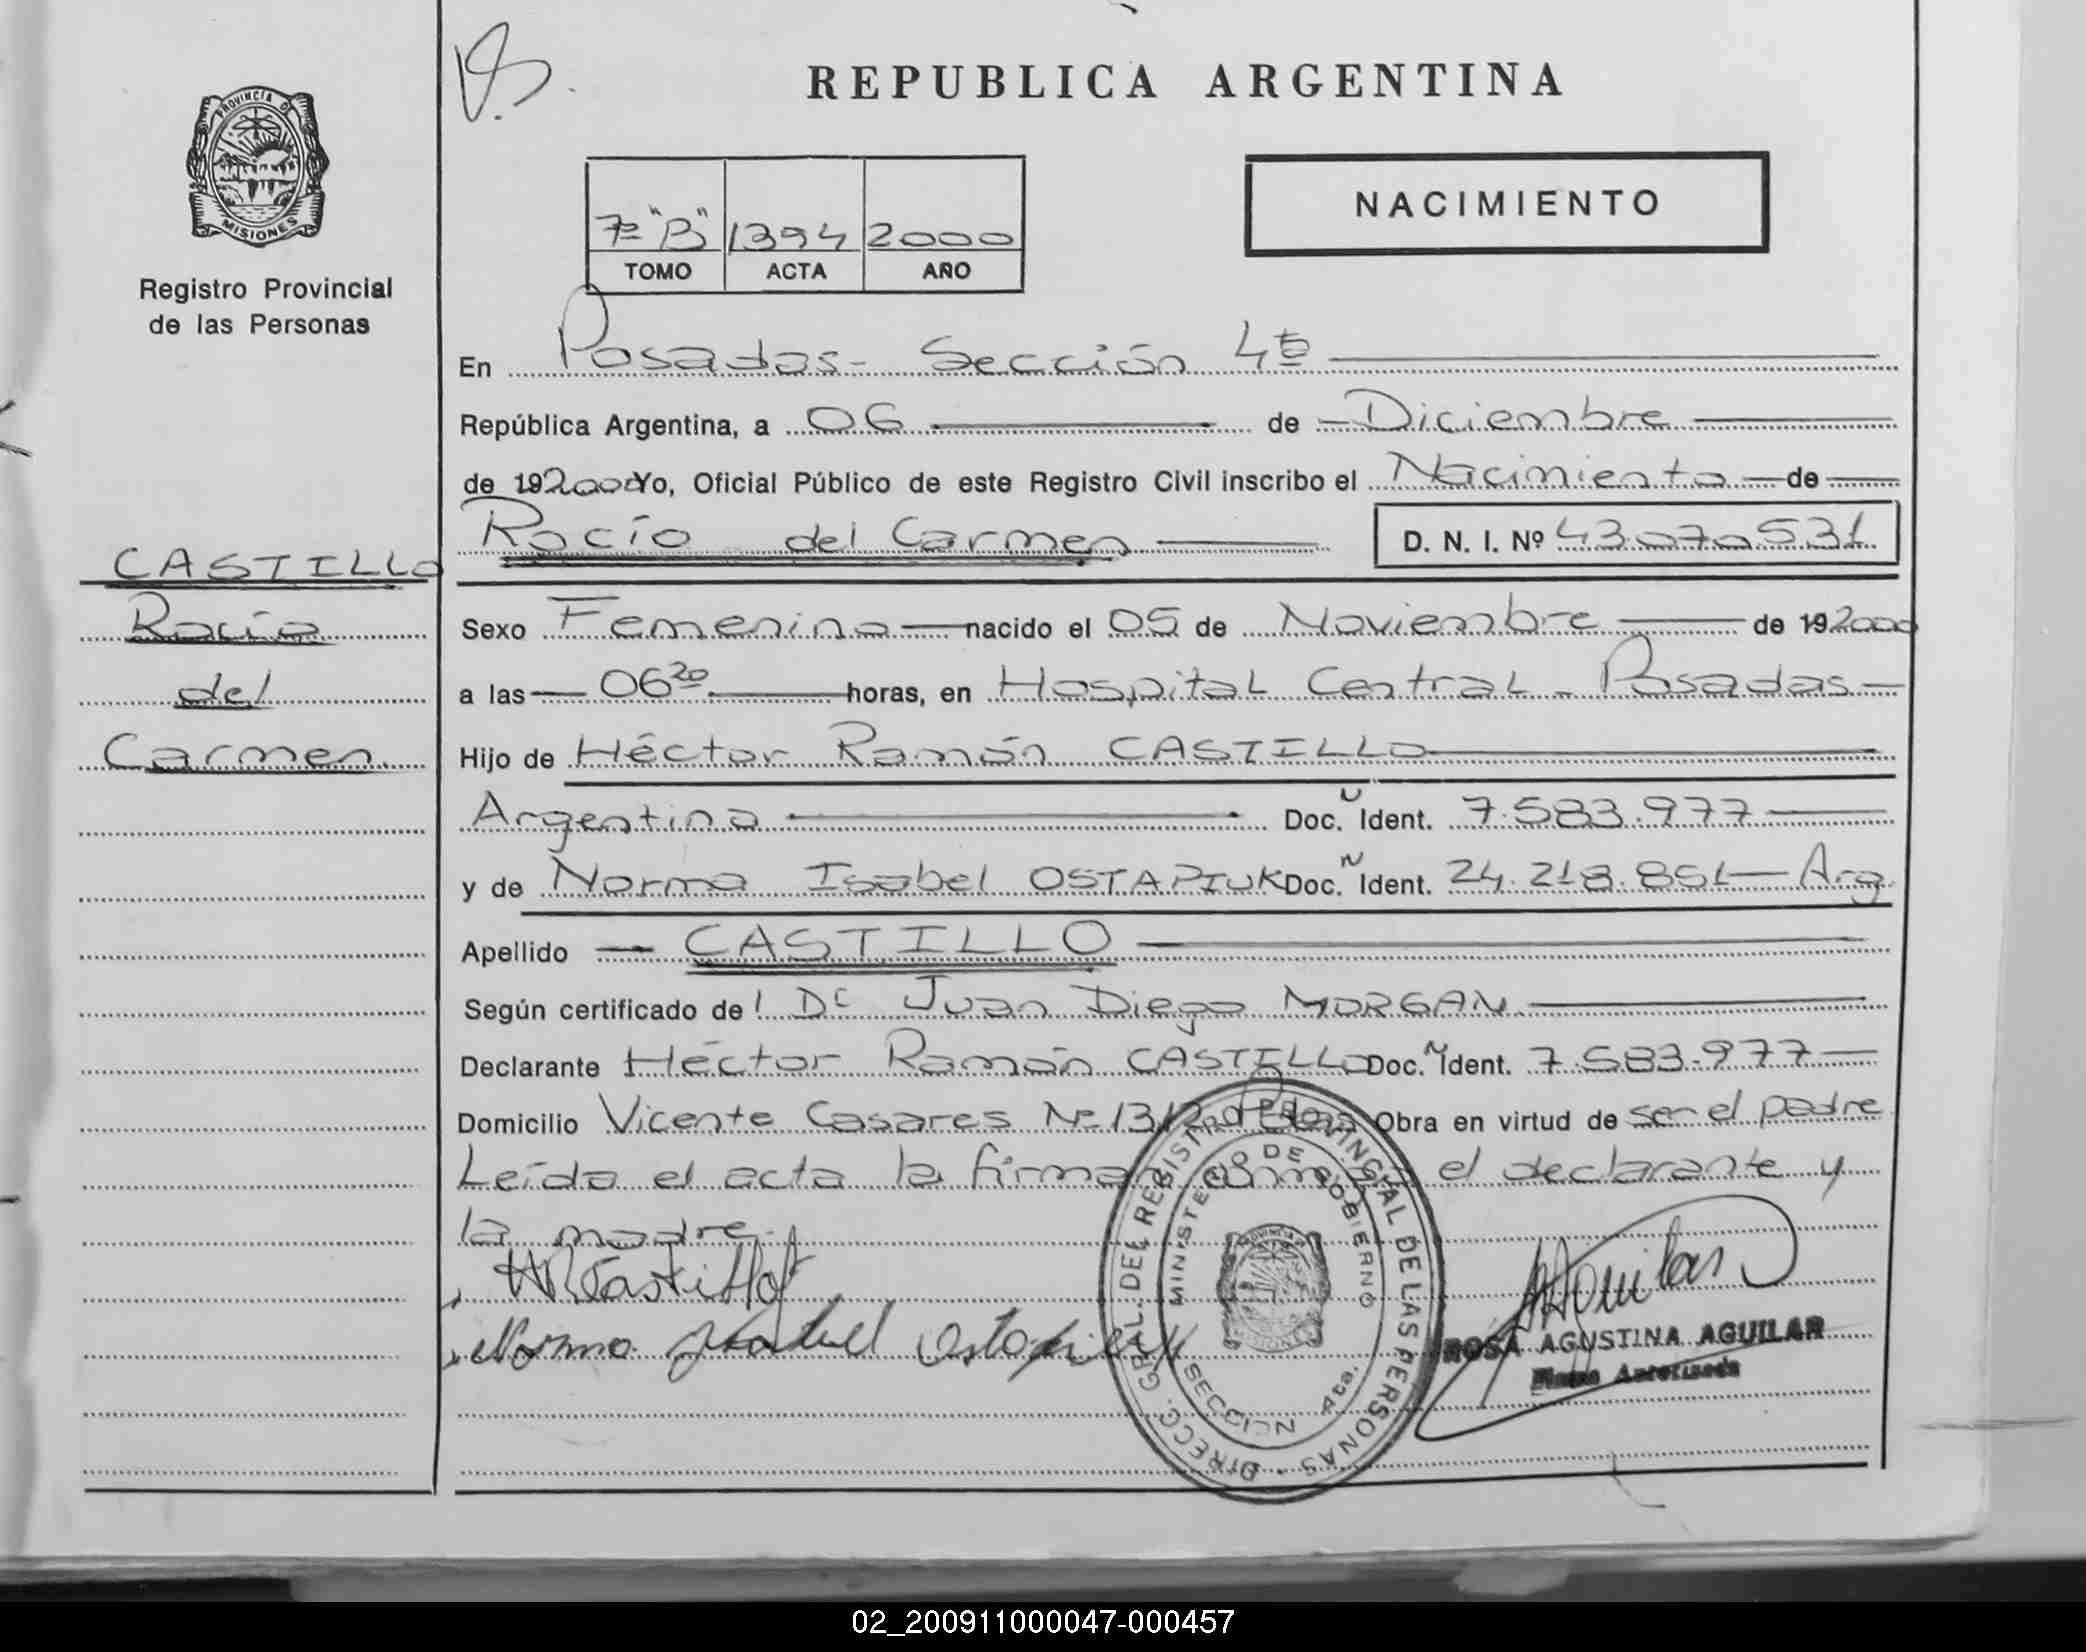 REPUBLICA ARGENTINA
PROVINCIA D
MISIONES
Registro Provincial
de las Personas
7º "B" 1394 2000
TOMO ACTA AÑO
NACIMIENTO
En Posadas - Sección 4ta
República Argentina, a 06 de Diciembre
de 192000 Yo, Oficial Público de este Registro Civil inscribo el Nacimiento de
Rocío del Carmen D. N. I. Nº 43.070.531
CASTILLO
Rocío
del
Carmen
Sexo Femenino nacido el 05 de Noviembre de 192000
a las 06 20 horas, en Hospital Central - Posadas -
Hijo de Héctor Ramón CASTILLO
Argentina Doc. N Ident. 7.583.977
y de Norma Isabel OSTAPIUK Doc. N Ident. 24.218.851 - Arg.
Apellido CASTILLO
Según certificado de l Dr Juan Diego MORGAN
Declarante Héctor Ramón CASTILLO Doc. N Ident. 7.583.977
Domicilio Vicente Casares Nº Obra en virtud de ser el padre
Leída el acta la firman el declarante y
la madre.
HRCastillo
Norma Isabel Ostapiuk
DIRECC. GRAL. DEL REGISTRO PROVINCIAL DE LAS PERSONAS
MINISTERIO DE GOBIERNO
SECCION 4ta.
Aguilar
ROSA AGUSTINA AGUILAR
Firma Autorizada
02_200911000047-000457